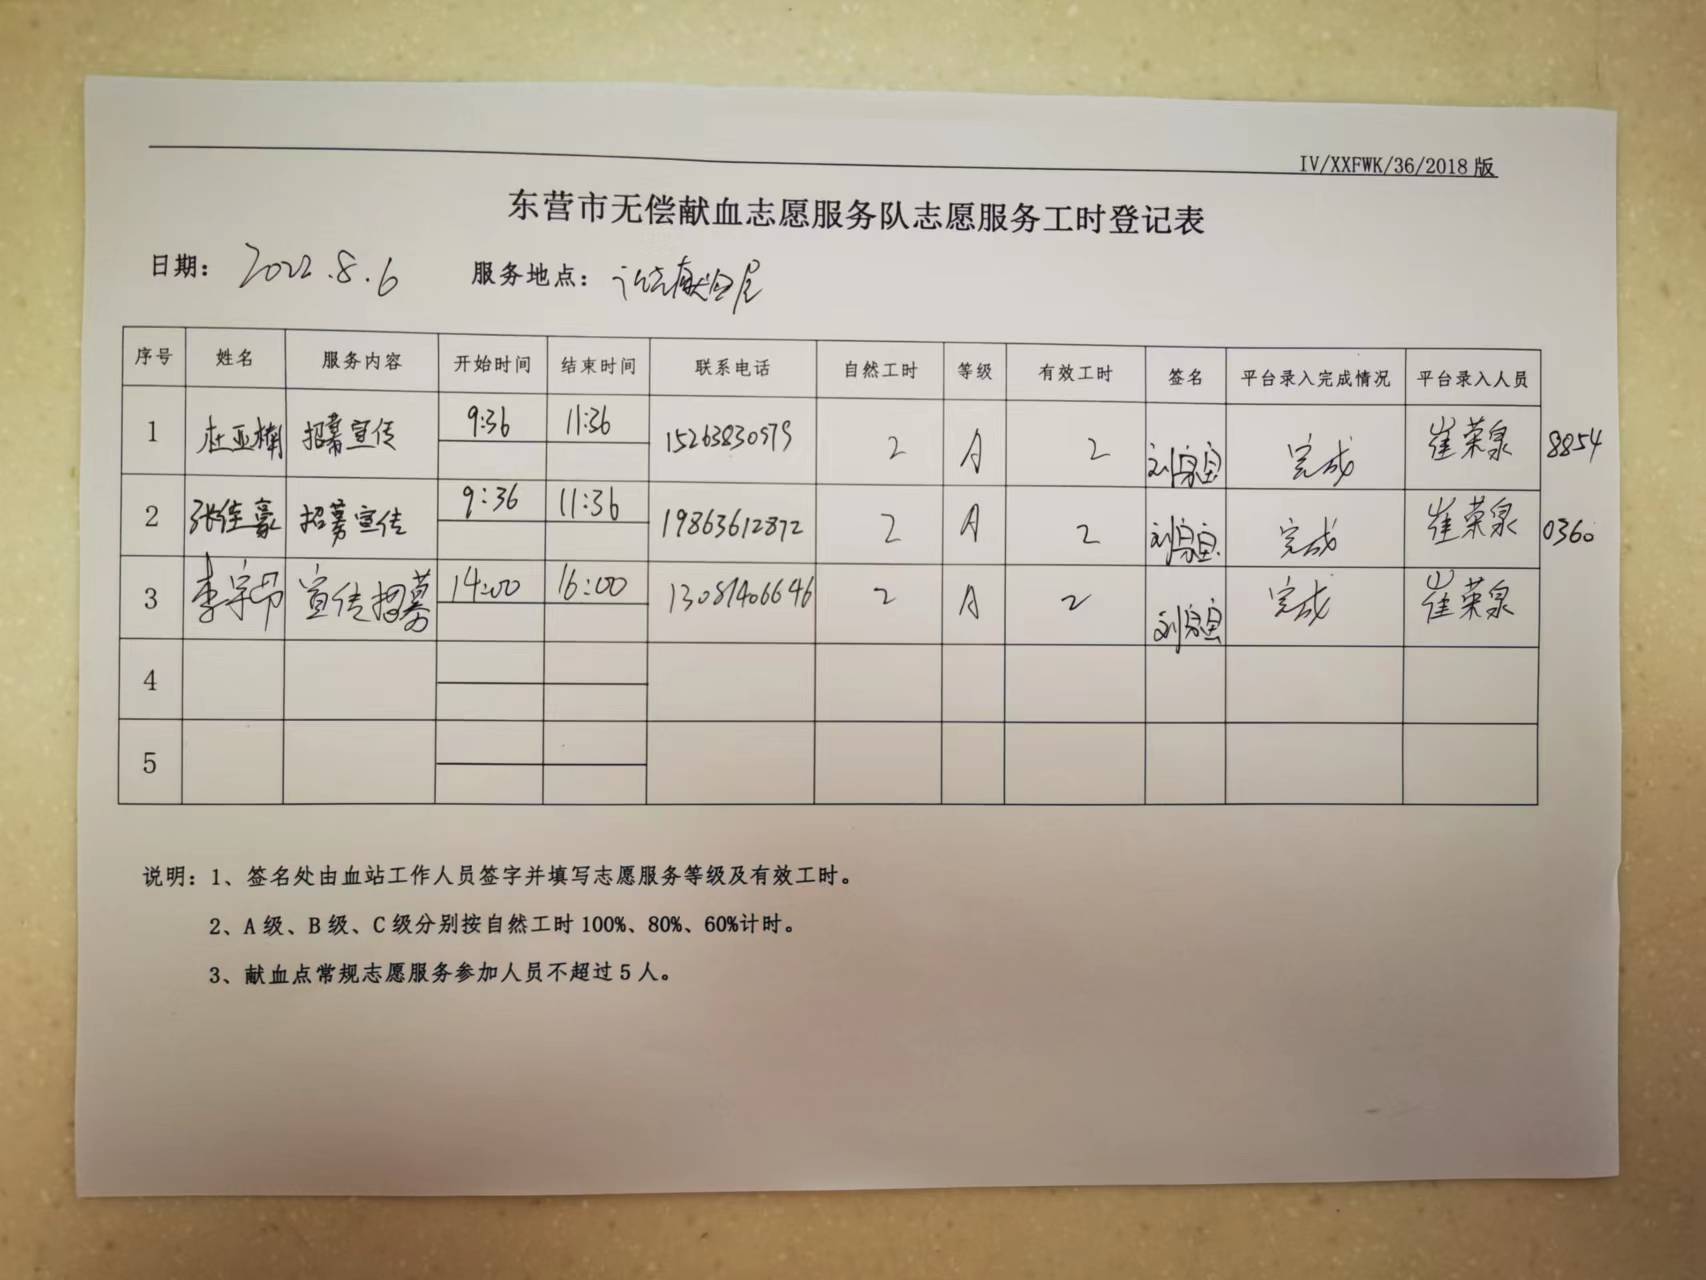 IV/XXFWK/36/2018版
东营市无偿献血志愿服务队志愿服务工时登记表
日期: 2022.8.6 服务地点: 献血屋
序号 姓名 服务内容 开始时间 结束时间 联系电话 自然工时 等级 有效工时 签名 平台录入完成情况 平台录入人员
1 杜亚楠 招募宣传 9:36 11:36 15263830579 2 A 2 完成 崔荣泉 8854
2 张佳豪 招募宣传 9:36 11:36 19863612872 2 A 2 完成 崔荣泉 0360
3 李宇昂 宣传招募 14:00 16:00 13081406646 2 A 2 完成 崔荣泉
4
5
说明: 1、签名处由血站工作人员签字并填写志愿服务等级及有效工时。
2、A级、B级、C级分别按自然工时100%、80%、60%计时。
3、献血点常规志愿服务参加人员不超过5人。